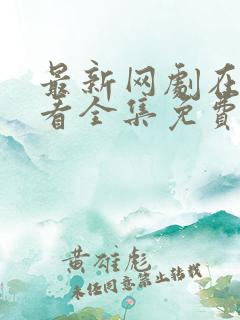 最新网剧在
看全集免费
黄雄彪
未经同意禁止转载